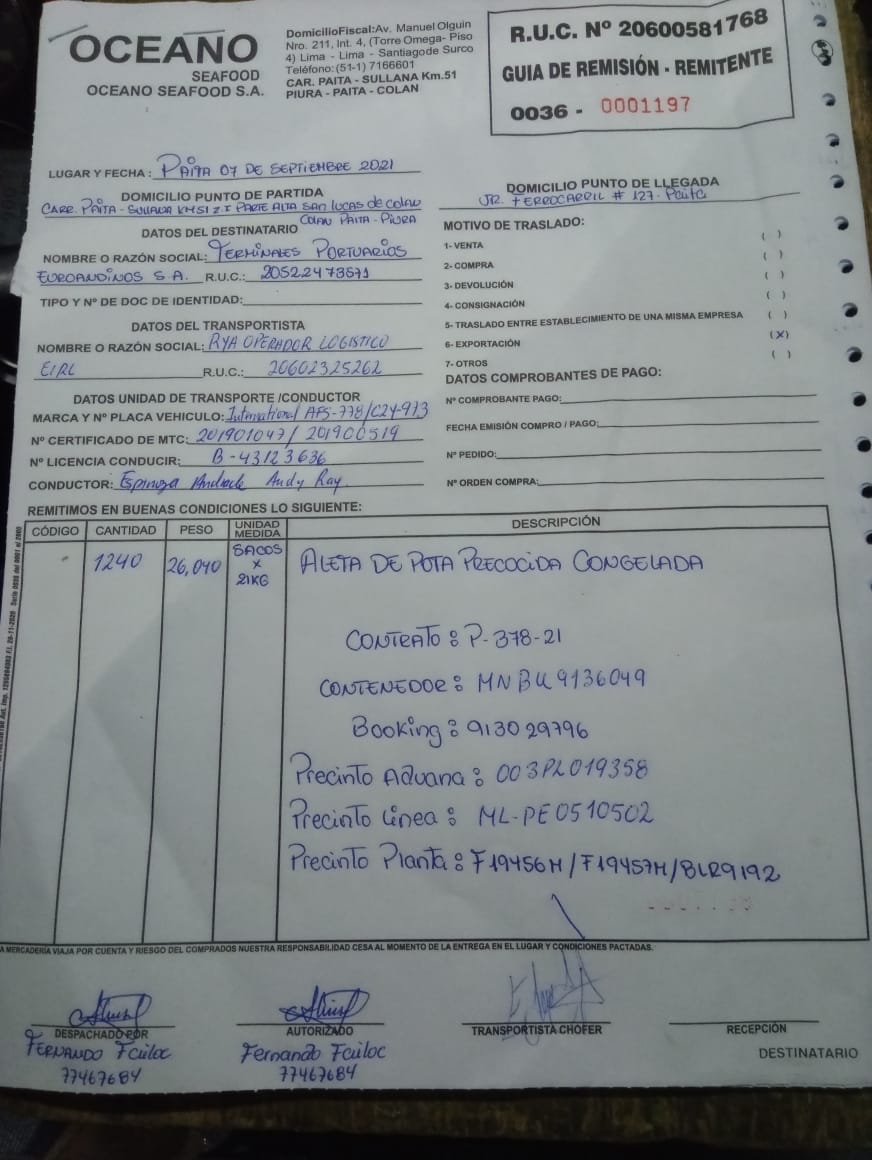 OCEANO
SEAFOOD
OCEANO SEAFOOD S.A.
DomicilioFiscal: Av. Manuel Olguin
Nro. 211, Int. 4, (Torre Omega- Piso
4) Lima - Lima - Santiagode Surco
Teléfono: (51-1) 7166601
CAR. PAITA - SULLANA Km.51
PIURA - PAITA - COLAN
R.U.C. Nº 20600581768
GUIA DE REMISIÓN - REMITENTE
0036 - 0001197
LUGAR Y FECHA : PAITA 07 DE SEPTIEMBRE 2021
DOMICILIO PUNTO DE PARTIDA
CARR. PAITA - SULLANA KM51 Z.I PARTE ALTA SAN LUCAS de COLAN
COLAN PAITA - PIURA
DOMICILIO PUNTO DE LLEGADA
JR. FERROCARRIL # 127- Paita
DATOS DEL DESTINATARIO
NOMBRE O RAZÓN SOCIAL: TERMINALES PORTUARIOS
EUROANDINOS S A. R.U.C.: 20522473571
TIPO Y Nº DE DOC DE IDENTIDAD:
DATOS DEL TRANSPORTISTA
NOMBRE O RAZÓN SOCIAL: RYA OPERADOR LOGISTICO
EIRL R.U.C.: 20602325262
DATOS UNIDAD DE TRANSPORTE /CONDUCTOR
MARCA Y Nº PLACA VEHICULO: International AFS-778/C2Y-973
Nº CERTIFICADO DE MTC: 201901047/ 201900519
Nº LICENCIA CONDUCIR: B-43123636
CONDUCTOR: Espinoza Andrade Andy Ray
MOTIVO DE TRASLADO:
1- VENTA ( )
2- COMPRA ( )
3- DEVOLUCIÓN ( )
4- CONSIGNACIÓN ( )
5- TRASLADO ENTRE ESTABLECIMIENTO DE UNA MISMA EMPRESA ( )
6- EXPORTACIÓN (X)
7- OTROS ( )
DATOS COMPROBANTES DE PAGO:
Nº COMPROBANTE PAGO:
FECHA EMISIÓN COMPRO / PAGO:
Nº PEDIDO:
Nº ORDEN COMPRA:
REMITIMOS EN BUENAS CONDICIONES LO SIGUIENTE:
CÓDIGO CANTIDAD PESO UNIDAD MEDIDA DESCRIPCIÓN
- 1240 26,040 SACOS x 21KG ALETA DE POTA PRECOCIDA CONGELADA
CONTRATO : P-378-21
CONTENEDOR : MNBU9136049
Booking : 913029796
Precinto Aduana : 003PL019358
Precinto Línea : ML-PE0510502
Precinto Planta : F19456M/F19457M/BLR9192
A MERCADERÍA VIAJA POR CUENTA Y RIESGO DEL COMPRADOS NUESTRA RESPONSABILIDAD CESA AL MOMENTO DE LA ENTREGA EN EL LUGAR Y CONDICIONES PACTADAS.
DESPACHADO POR
FERNANDO Fculoc
77467684
AUTORIZADO
Fernando Fculoc
77467684
TRANSPORTISTA CHOFER
RECEPCIÓN
DESTINATARIO